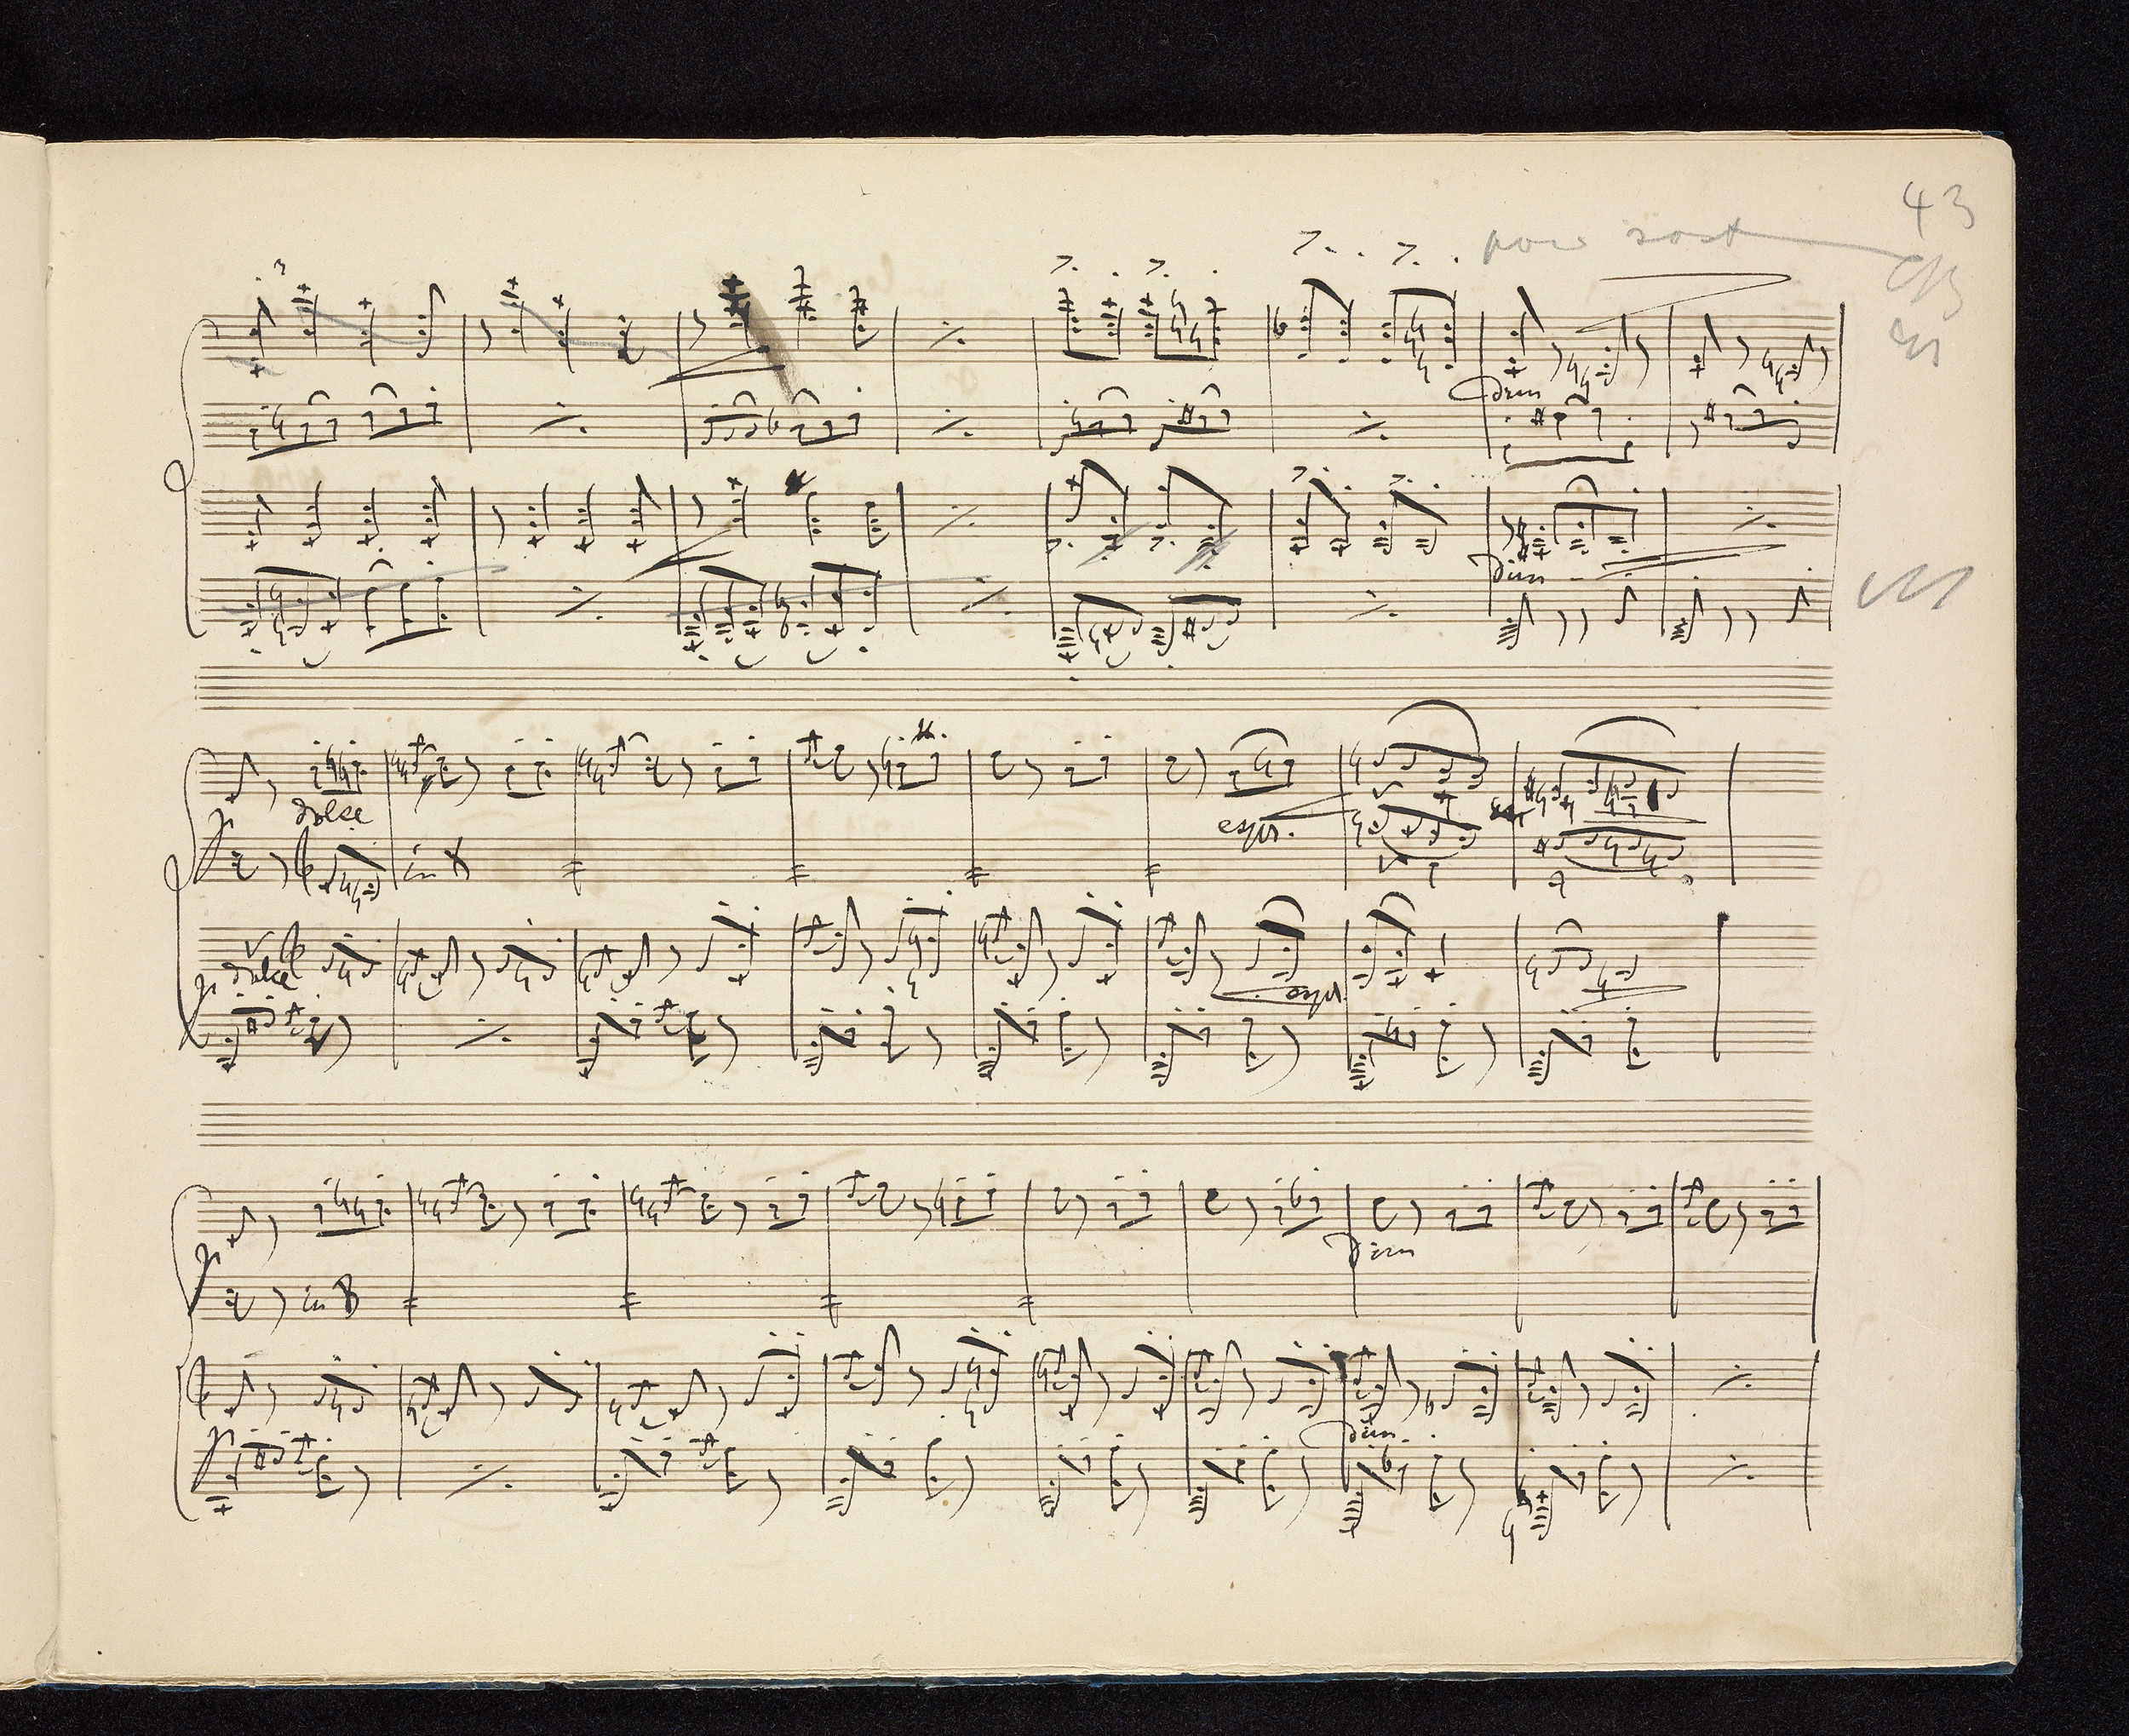 43
poco sost
dim
dim
dolce
in 8
espr.
dolce
espr.
dim
in 8
dim.